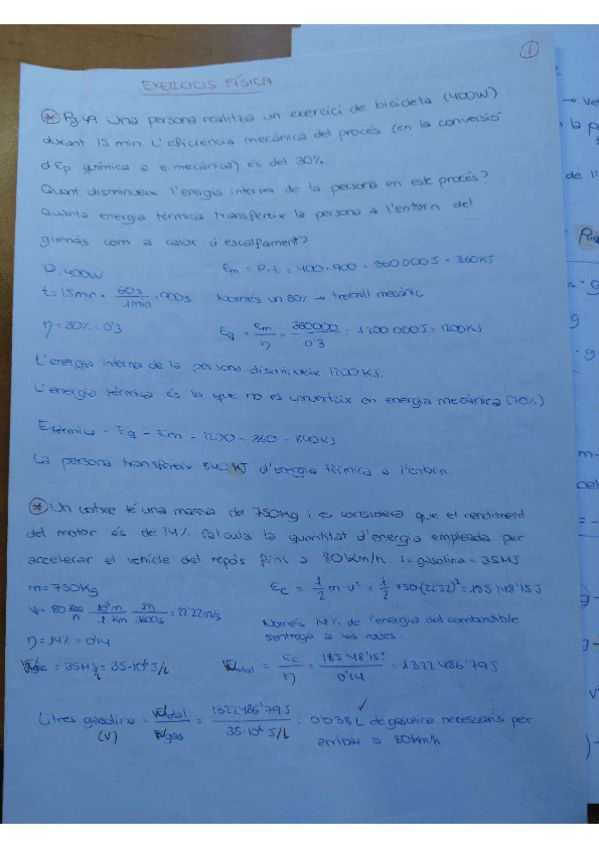 1
EXERCICIS FÍSICA
* Pg 49 Una persona realitza un exercici de bicicleta (400W)
durant 15 min. L'eficiència mecànica del procés (en la conversió
d'Ep química a e. mecànica) és del 30%.
Quant disminueix l'energia interna de la persona en este procés?
Quanta energia tèrmica transfereix la persona a l'entorn del
gimnàs com a calor d'escalfament?
P = 400W
Em = P·t = 400 · 900 = 360000J = 360KJ
t = 15min · 60s / 1min = 900s
Només un 30% → treball mecànic
η = 30% = 0'3
Eq = Em / η = 360000 / 0'3 = 1200 000J = 1200KJ
L'energia interna de la persona disminueix 1200 KJ.
L'energia tèrmica és la que no es converteix en energia mecànica (70%)
Etèrmica = Eq - Em = 1200 - 360 = 840KJ
La persona transfereix 840 KJ d'energia tèrmica a l'entorn.
* Un cotxe té una massa de 750Kg i es considera que el rendiment
del motor és de 14%. Calcula la quantitat d'energia empleada per
accelerar el vehicle del repòs fins a 80km/h 1L gasolina = 35MJ
m = 750Kg
Ec = 1/2 m · v² = 1/2 750 (22'22)² = 185148'15J
v = 80 km/h · 10³m / 1 Km · 1h / 3600s = 22'22m/s
Només 14% de l'energia del combustible
η = 14% = 0'14
s'entrega a les rodes.
= 35MJ/L = 35·10⁶ J/L
total = Ec / η = 185148'15J / 0'14 = 1322486'79J
Litres gasolina (V) = total / gas = 1322486'79J / 35·10⁶ J/L = 0'038L de gasolina necessaris per
arribar a 80km/h